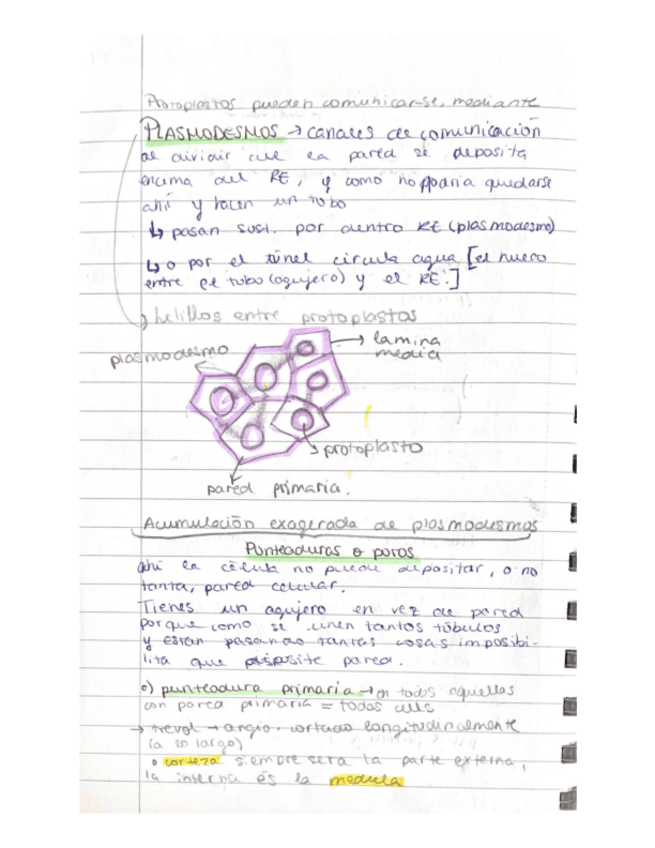 Protoplastos pueden comunicar-se, mediante
PLASMODESMOS → canales de comunicación
al dividir cel la pared se deposita
encima del RE, y como no podria quedarse
ahí y hacen un tubo
↳ pasan sust. por dentro RE (plasmodesmo)
↳ o por el túnel circula agua [el hueco
entre el tubo (agujero) y el RE.]
hilillos entre protoplastos
plasmodesmo
→ lamina
media
protoplasto
pared primaria.
Acumulación exagerada de plasmodesmos
Punteaduras o poros
ahí la célula no puede depositar, o no
tanta, pared celular.
Tienes un agujero en vez de pared
porque como se unen tantos túbulos
y estan pasando tantas cosas imposibi-
lita que deposite pared.
o) punteadura primaria → en todos aquellos
con pared primaria = todas
→ trevol → angio. cortado longitudinalmente
(a lo largo)
o corteza siempre sera la parte externa,
la interna es la medula